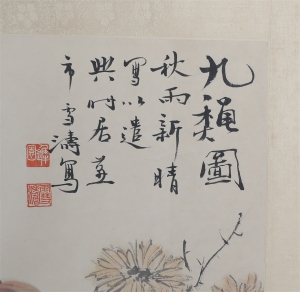 九秋圖
秋雨新晴
寫以遣
興時居燕
市雪濤寫